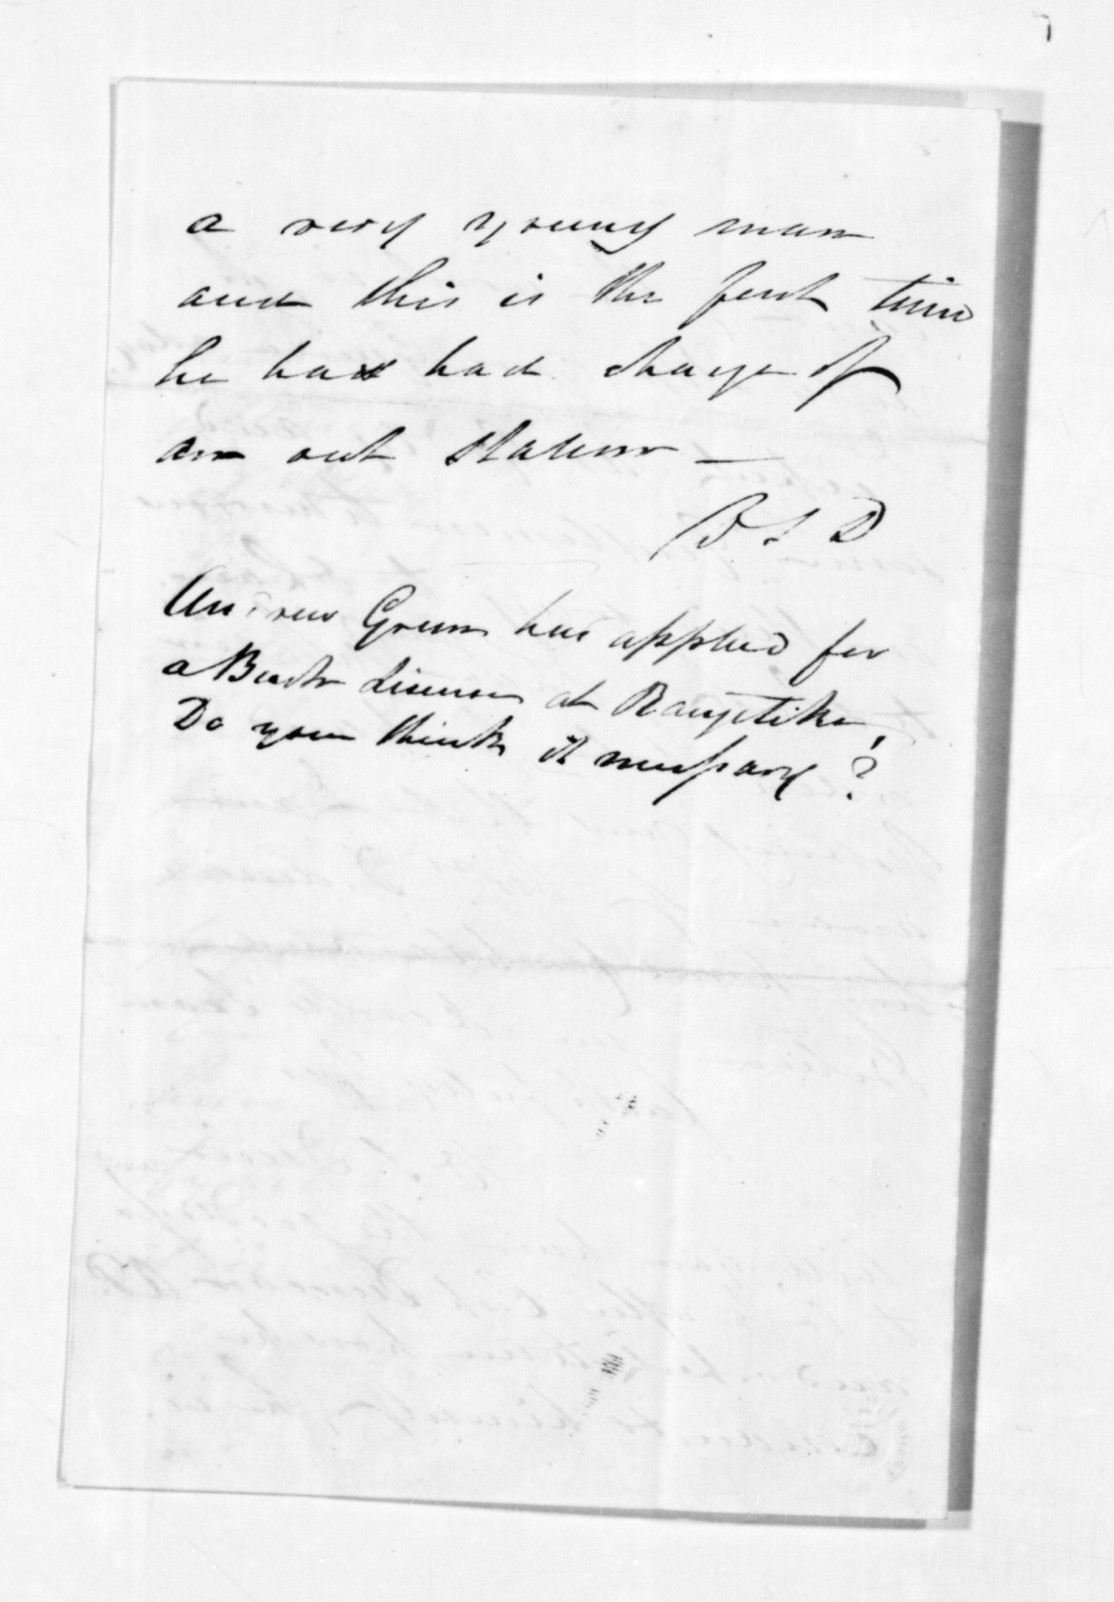 a very young man
and this is the first time
he has had charge of
an out station —
B S D
Andrew Green has applied for
a Bush License at Rangitikei,
Do you think it necessary?